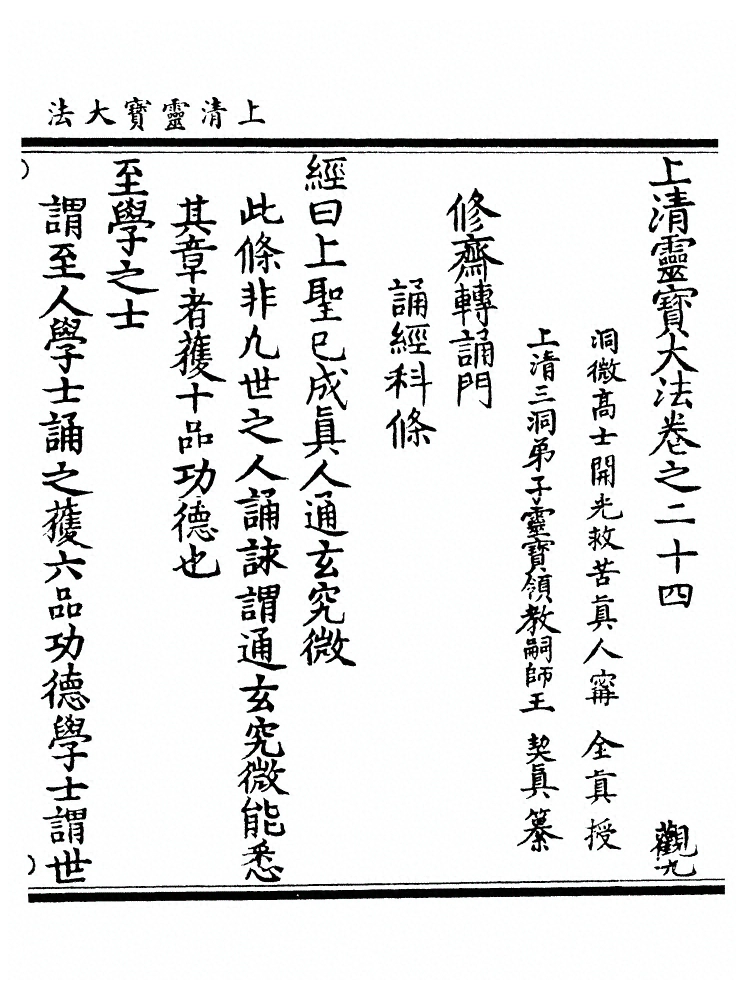 上清靈寶大法
上清靈寶大法卷之二十四 觀九
洞微高士開光救苦眞人甯 全眞 授
上清三洞弟子靈寶領教嗣師王 契眞 纂
修齋轉誦門
誦經科條
經曰上聖已成眞人通玄究微
此條非九世之人誦詠謂通玄究微能悉
其章者獲十品功德也
至學之士
謂至人學士誦之獲六品功德學士謂世